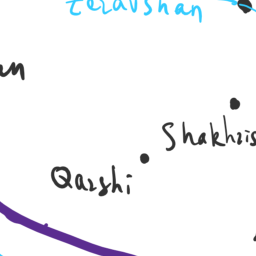 Zeravshan
Shakhris
Qarshi